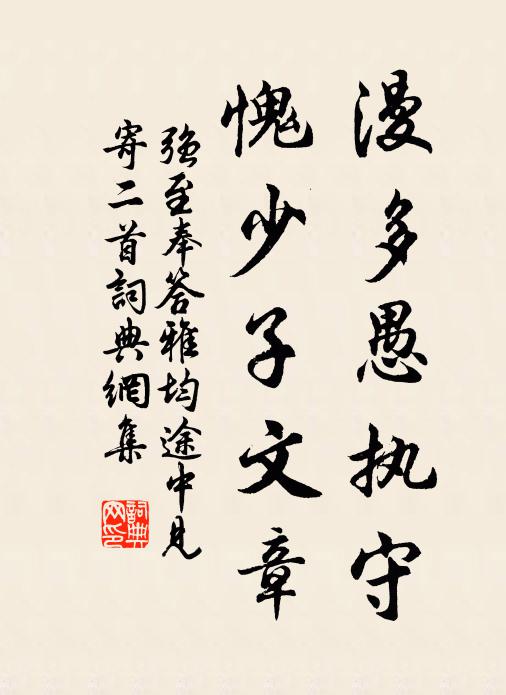 漫多愚执守
愧少子文章
强至奉答雅均途中见
寄二首詞典網集
詞典
网印